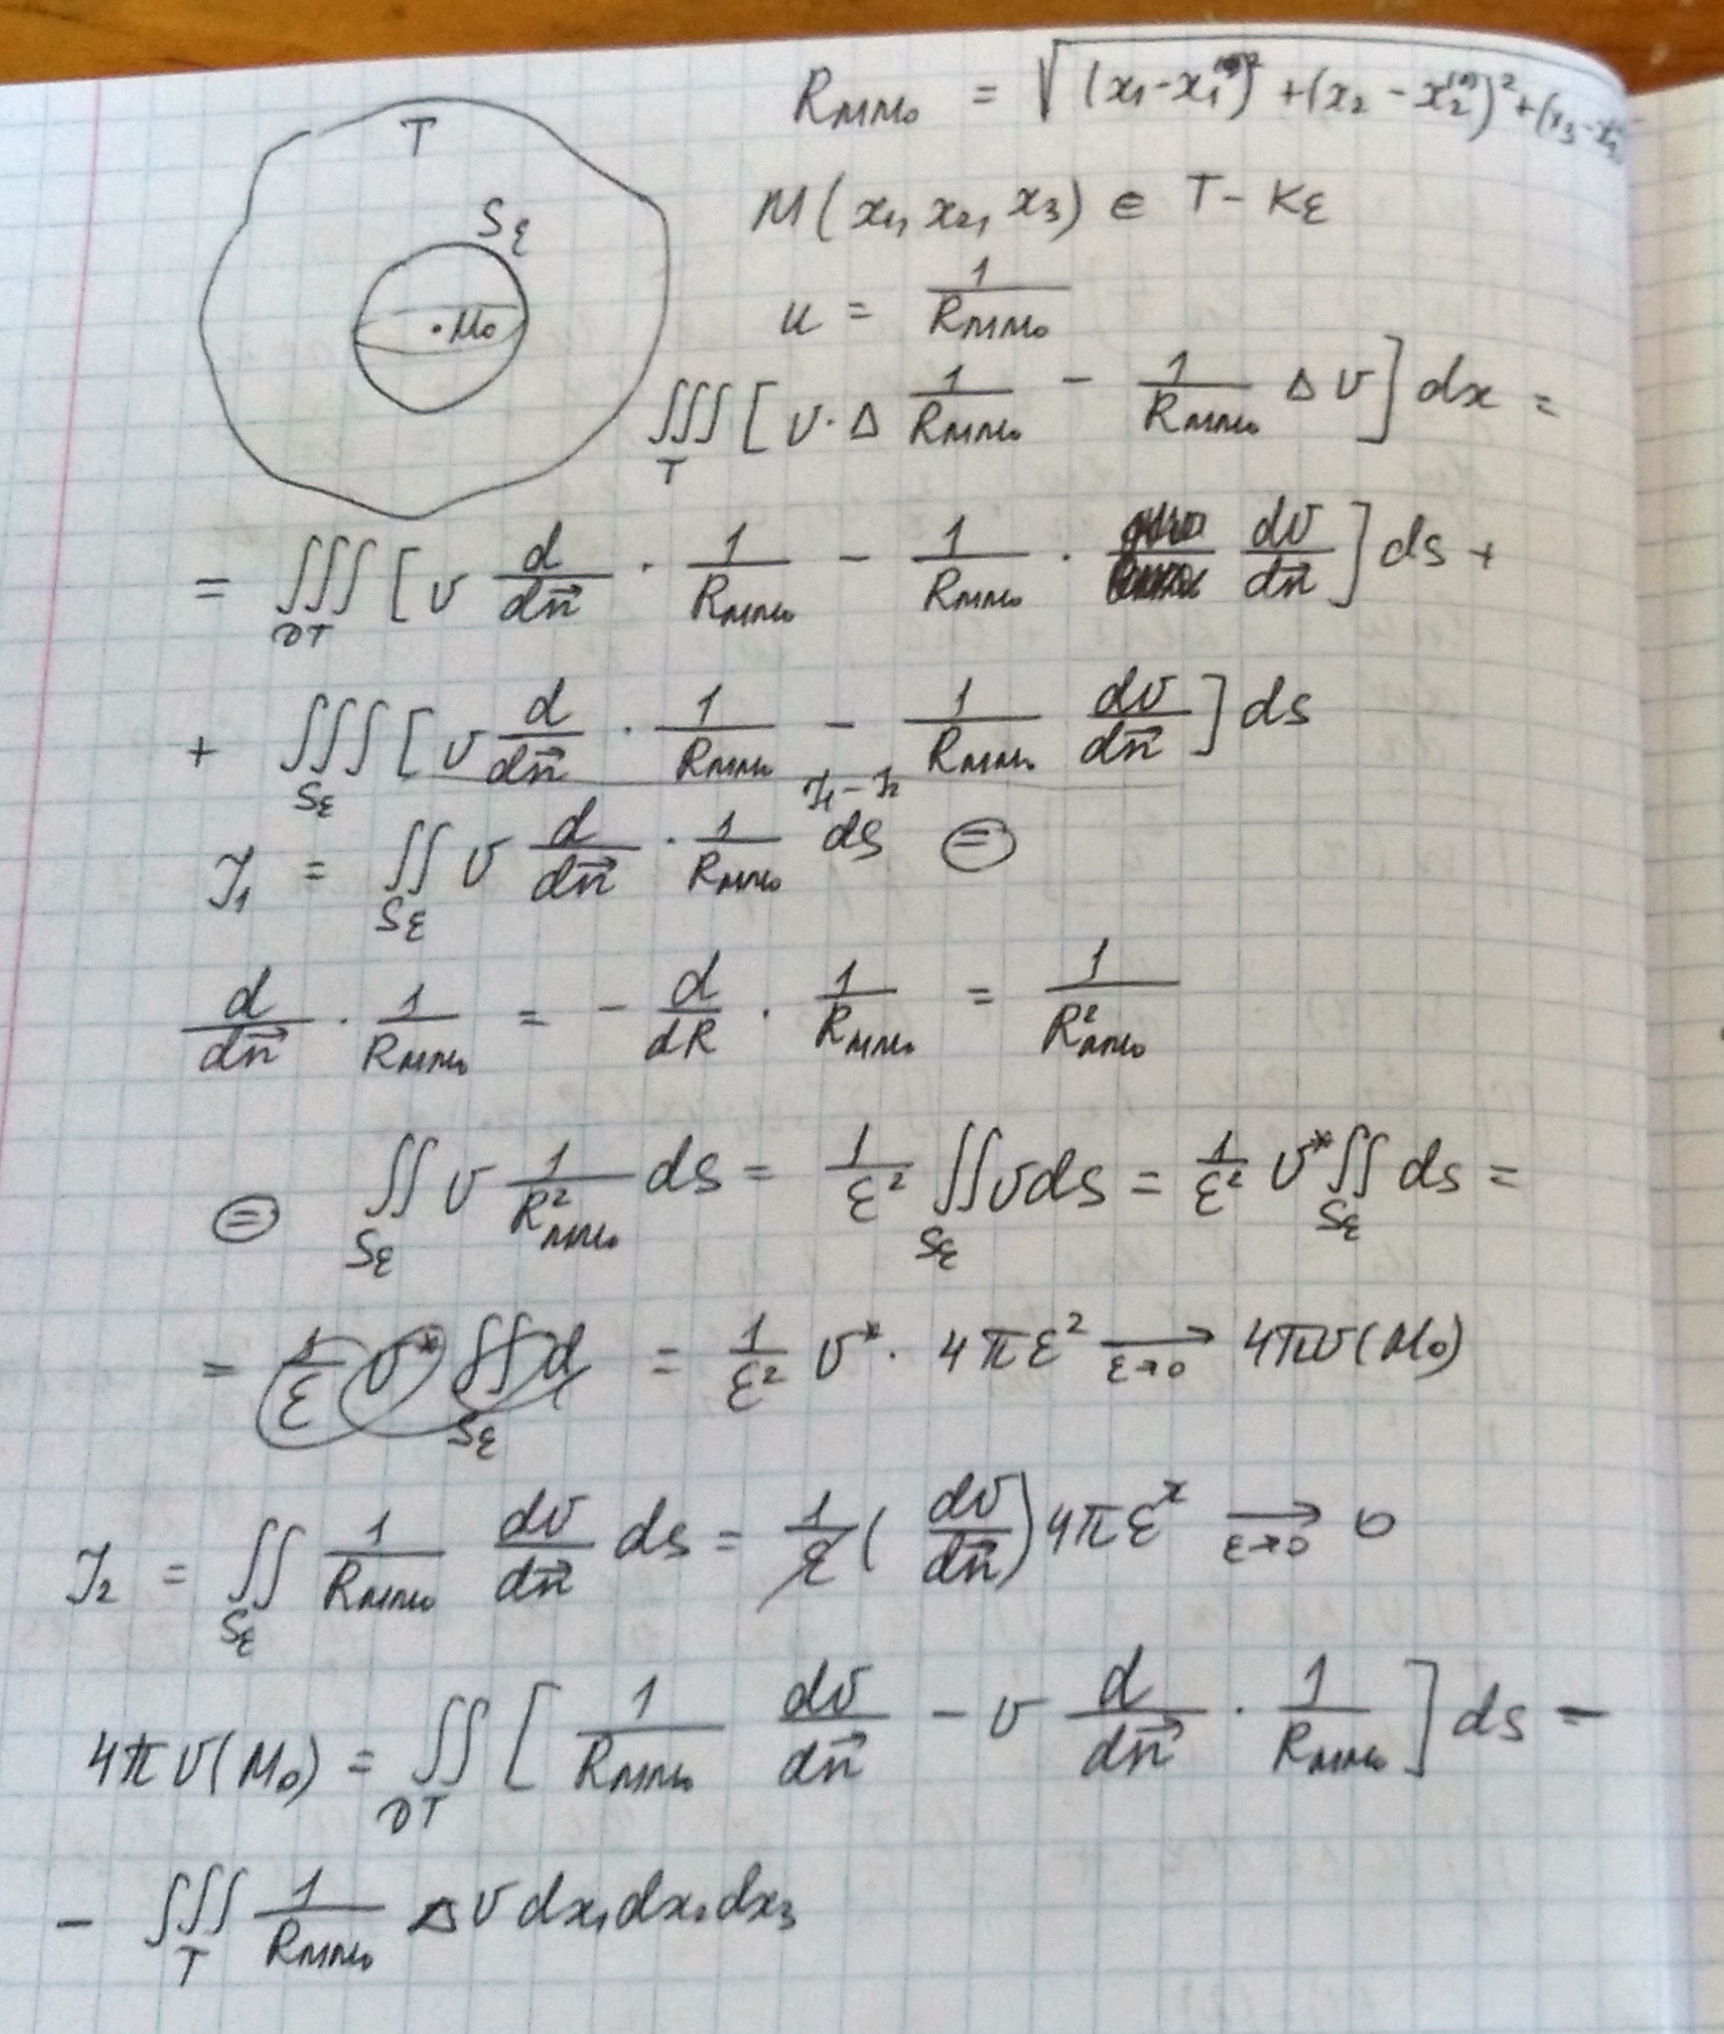 T
S_ε
·M₀
R_{MM₀} = √((x₁-x₁⁽⁰⁾)² + (x₂ - x₂⁽⁰⁾)² + (x₃ - x₃
M(x₁, x₂, x₃) ∈ T - K_ε
u = 1/R_{MM₀}
∭_T [v·Δ 1/R_{MM₀} - 1/R_{MM₀} Δv] dx =
= ∭_{∂T} [v d/dn⃗ · 1/R_{MM₀} - 1/R_{MM₀} · dv/dn⃗] ds +
+ ∭_{S_ε} [v d/dn⃗ · 1/R_{MM₀} - 1/R_{MM₀} dv/dn⃗] ds
J₁ - J₂
J₁ = ∬_{S_ε} v d/dn⃗ · 1/R_{MM₀} ds ⊜
d/dn⃗ · 1/R_{MM₀} = - d/dR · 1/R_{MM₀} = 1/R²_{MM₀}
⊜ ∬_{S_ε} v 1/R²_{MM₀} ds = 1/ε² ∬_{S_ε} v ds = 1/ε² v* ∬_{S_ε} ds =
= 1/ε v* ∬_{S_ε} d = 1/ε² v* · 4πε² →_{ε→0} 4πv(M₀)
J₂ = ∬_{S_ε} 1/R_{MM₀} dv/dn⃗ ds = 1/ε (dv/dn⃗) 4πε² →_{ε→0} 0
4πv(M₀) = ∬_{∂T} [1/R_{MM₀} dv/dn⃗ - v d/dn⃗ · 1/R_{MM₀}] ds -
- ∭_T 1/R_{MM₀} Δv dx₁dx₂dx₃